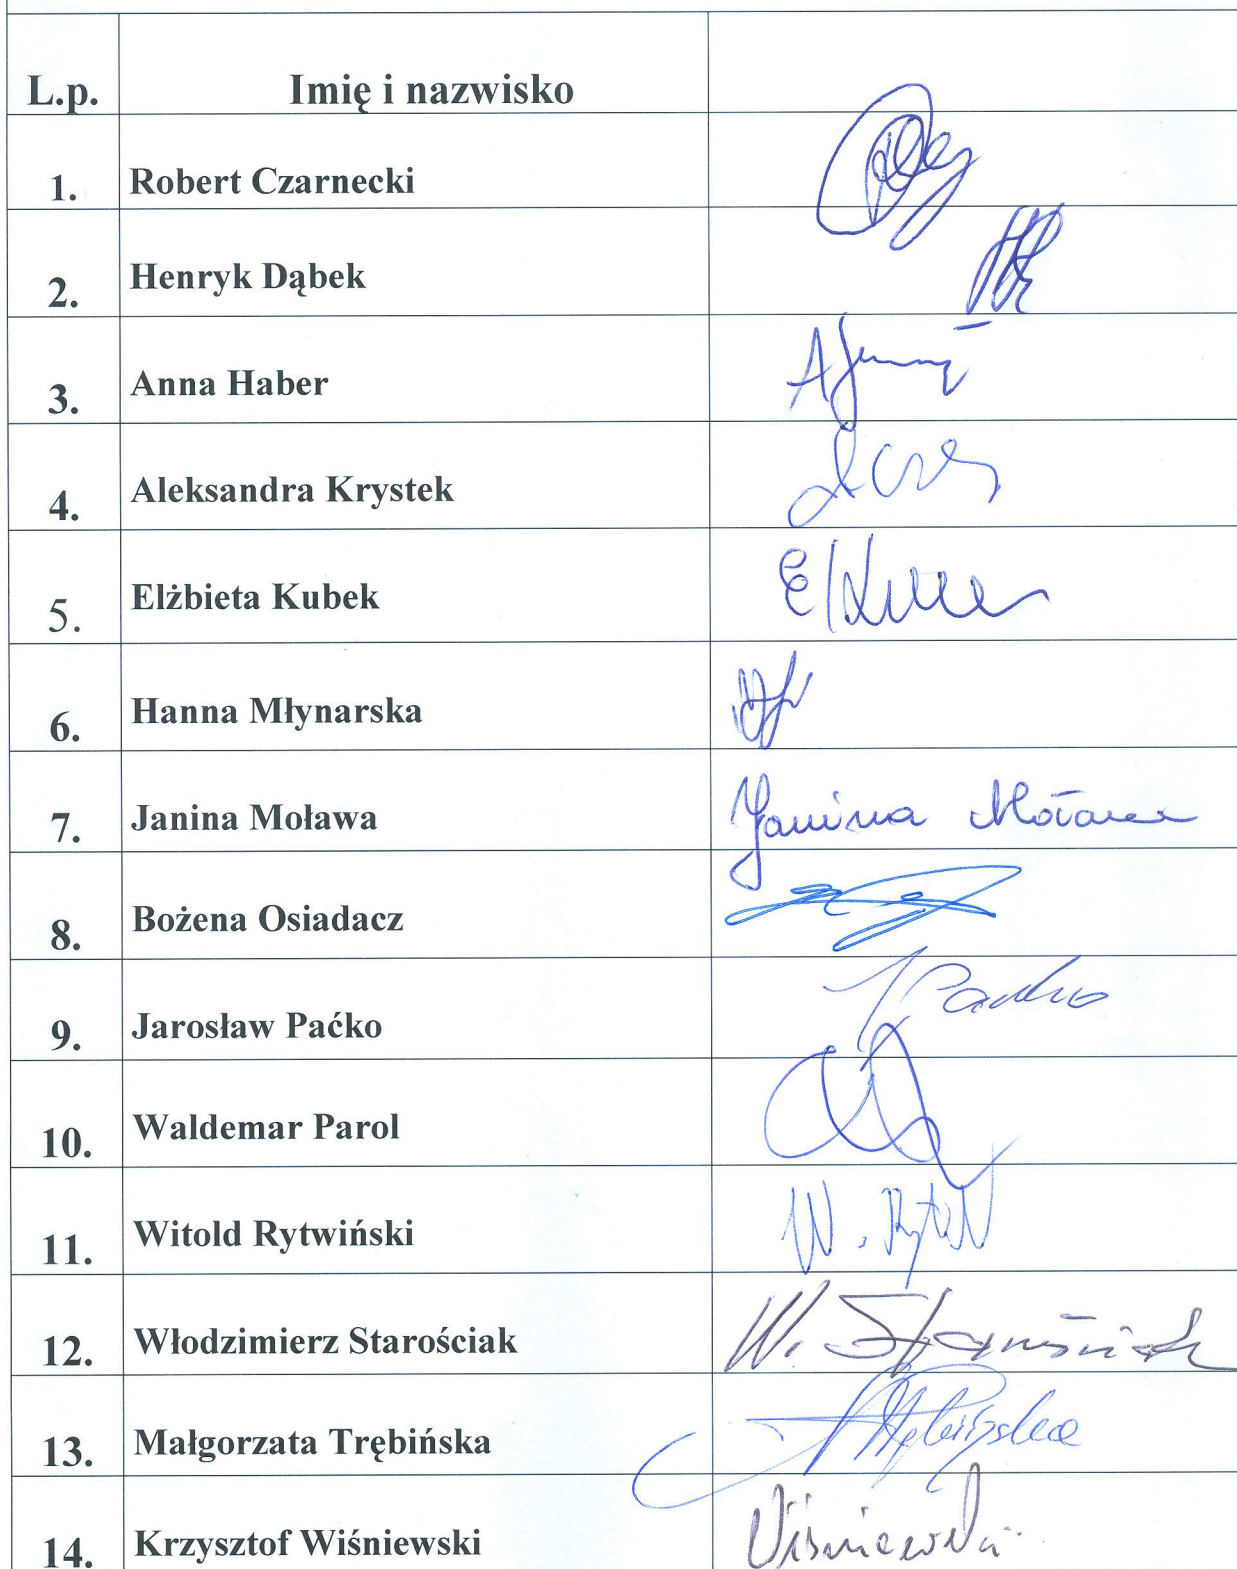 L.p. Imię i nazwisko
1. Robert Czarnecki
2. Henryk Dąbek
3. Anna Haber
4. Aleksandra Krystek
5. Elżbieta Kubek
6. Hanna Młynarska
7. Janina Moława Janina Moława
8. Bożena Osiadacz
9. Jarosław Paćko
10. Waldemar Parol
11. Witold Rytwiński
12. Włodzimierz Starościak W. Starościak
13. Małgorzata Trębińska
14. Krzysztof Wiśniewski Wiśniewski